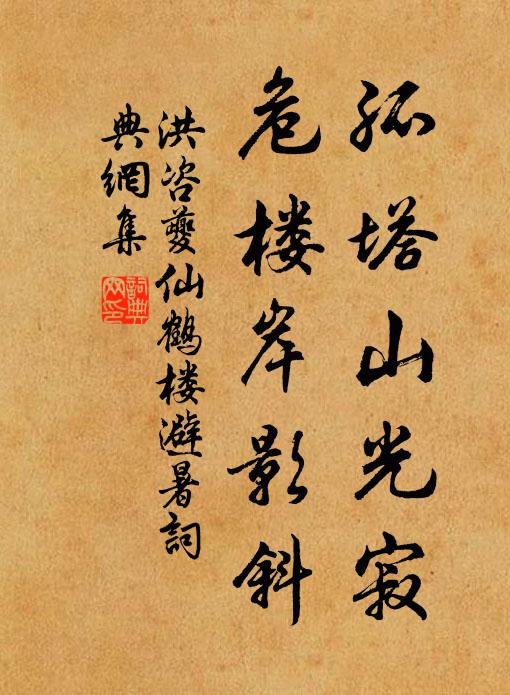 孤塔山光寂
危楼岸影斜
洪咨夔仙鹤楼避暑詞
典網集
詞典
网印